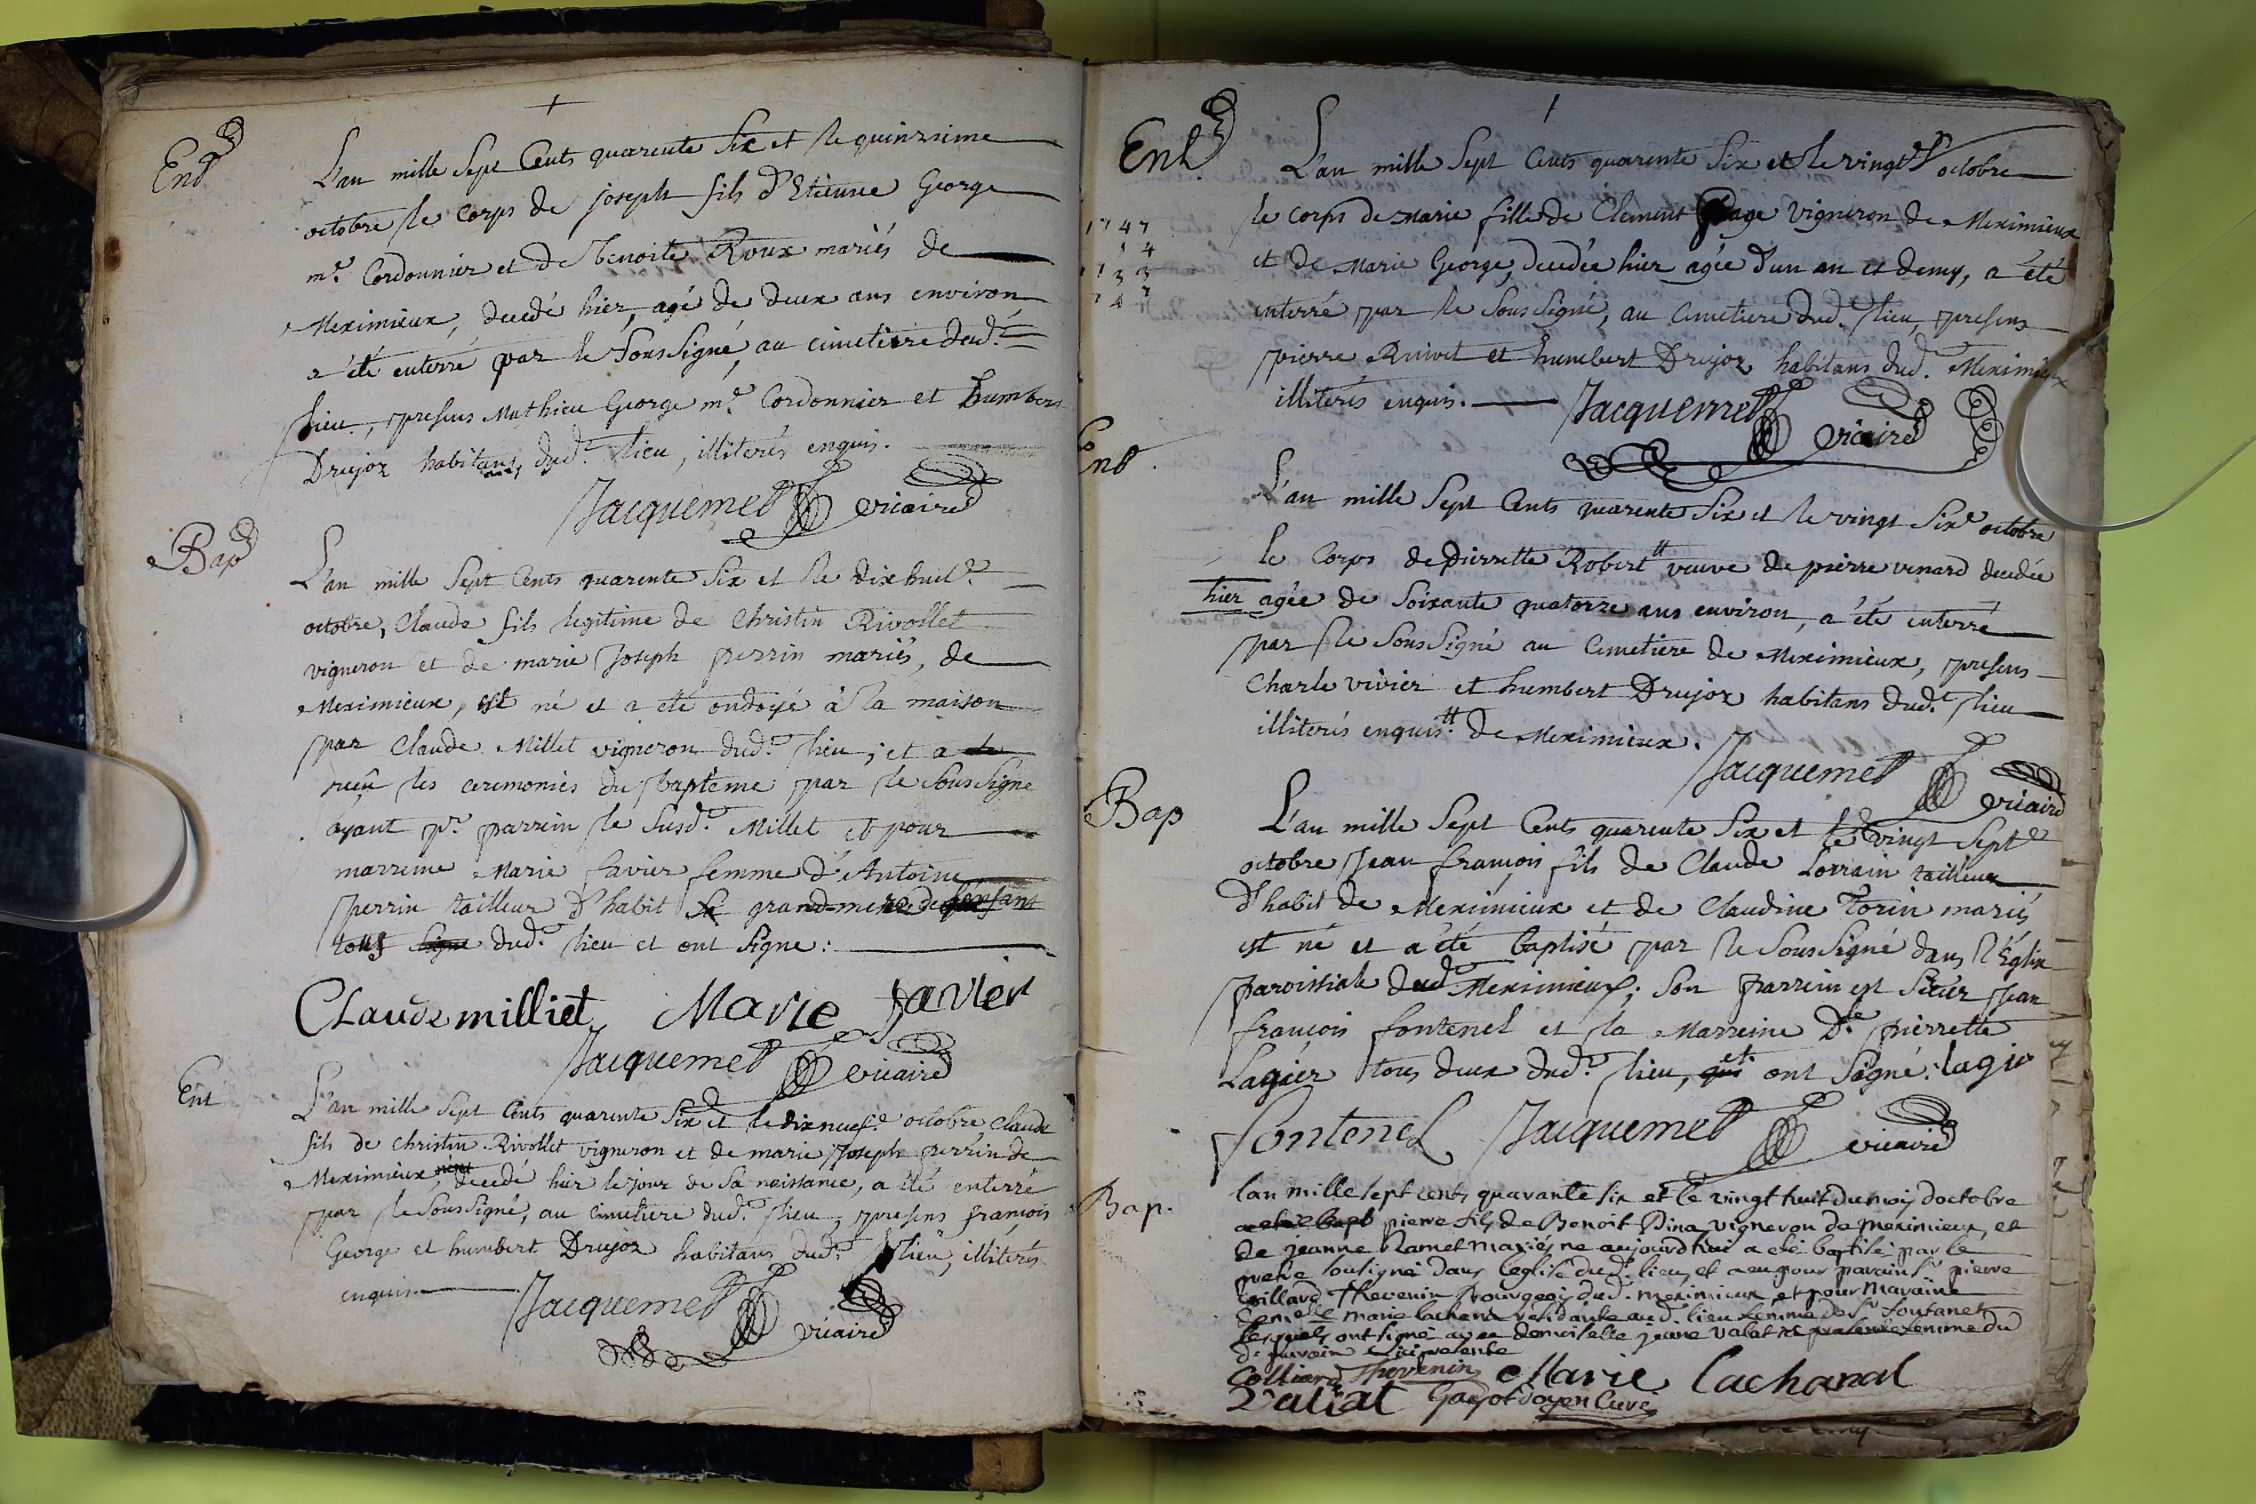 Ent
L'an mille Sept Cents quarente Six et le quinzieme
octobre le corps de joseph fils d'Etienne George
m.e Cordonnier et de benoite Roux mariés de
Meximieux, decedé hier, agé de deux ans environ
a été enterré par le Soussigné, au cimetiere dud.
lieu, presens Mathieu George m.e Cordonnier et humbert
Drujon habitans, dud. lieu, illiterés enquis.
Jacquemet vicaire
Bap
L'an mille Sept Cents quarente Six et le dixhuit.e
octobre, Claude fils legitime de Christin Rivollet
vigneron et de marie Joseph perrin mariés, de
Meximieux, est né et a été ondoyé à la maison
par Claude Millet vigneron dud. lieu; et a
reçu les ceremonies du baptême par le Soussigné
ayant p.r parrein le Susd. Millet et pour
marreine Marie favier femme d'Antoine
perrin tailleur d'habit grand-mere de l'enfant
tous dud. lieu et ont signe:
Claude milliet Marie favier
Jacquemet vicaire
Ent
L'an mille Sept Cents quarente Six et le dixneuf.e octobre Claude
fils de christin Rivollet vigneron et de marie Joseph perrin de
Meximieux, decedé hier le jour de Sa naissance, a été enterré
par le Soussigné, au cimetiere dud. lieu, presens françois
George et humbert Drujon habitans dud. lieu, illiterés
enquis.
Jacquemet vicaire
Ent.
L'an mille Sept Cents quarente Six et le vingt octobre
le corps de marie fille de Clement page Vigneron de Meximieux
et de Marie George, decedée hier agée d'un an et demy, a été
enterré par le Soussigné, au cimetiere dud. lieu, presens
pierre Ruivet et humbert Drujon habitans dud. Meximieux
illiterés enquis.
1747
14
Jacquemet vicaire
Ent.
L'an mille Sept Cents quarente Six et le vingt Six.e octobre
le Corps de pierrette Robert tt veuve de pierre venard decedée
hier agée de Soixante quatorze ans environ, a été enterré
par le Soussigné au Cimetiere de Meximieux, presens
Charle vivier et humbert Drujon habitans dud. lieu
illiterés enquis. tt de Meximieux.
Jacquemet vicaire
Bap
L'an mille Sept Cents quarente Six et le vingt Sept.e
octobre Jean françois fils de Claude Lorrain tailleur
d'habit de Meximieux et de Claudine Torin mariés
est né et a été baptisé par le Soussigné dans l'Église
paroissiale dud. Meximieux; Son parrein est Sieur Jean
françois fontenel et la Marreine D.e pierrette
Lagier tous deux dud. lieu, et ont Signé: lagie
fontenel Jacquemet vicaire
Bap.
lan mille sept cents quarante six et le vingt huit du mois doctobre
pierre fils de Benoit Pina vigneron de meximieux, et
de jeanne Ramet mariés ne aujourdhui a eté baptisé par le
pretre sousigné dans leglise dud. lieu, et a eu pour parain s.r pierre
Coillard Thevenin Bourgeois dud. meximieux et pour maraine
dem.elle marie lachana residante aud. lieu femme de s.r fontanel
lesquels ont signé avec demoiselle jeane valat femme du
d. parrain ici presente
Colliard Thevenin Marie Lachanal
Valiat Gayot doyen Curé